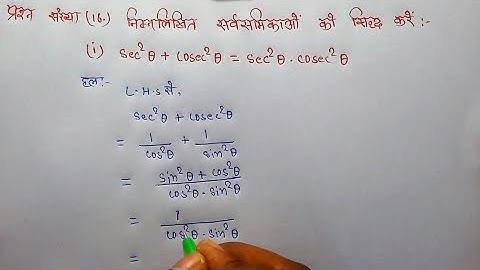 प्रश्न संख्या (16.) निम्नलिखित सर्वसमिकाओं को सिद्ध करें :-
(i) sec²θ + cosec²θ = sec²θ . cosec²θ
हल:-
L.H.S से,
sec²θ + cosec²θ
= 1/cos²θ + 1/sin²θ
= sin²θ + cos²θ / cos²θ . sin²θ
= 1 / cos²θ . sin²θ
=